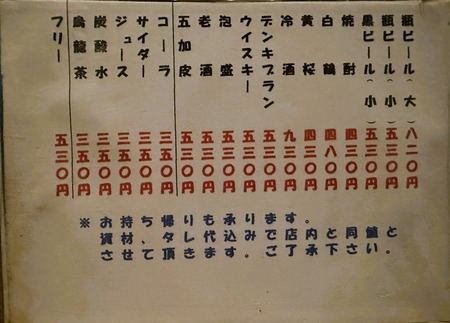 瓶ビール(大) 八二〇円
瓶ビール(小) 五三〇円
黒ビール(小) 五三〇円
焼酎 四三〇円
白鶴 四八〇円
黄桜 四三〇円
冷酒 九三〇円
デンキブラン 五三〇円
ウイスキー 五三〇円
泡盛 五三〇円
老酒 五三〇円
五加皮 五三〇円
コーラ 三五〇円
サイダー 三五〇円
ジュース 三五〇円
炭酸水 三五〇円
烏龍茶 三五〇円
フリー 五三〇円
※お持ち帰りも承ります。
資材、タレ代込みで店内と同値と
させて頂きます。ご了承下さい。